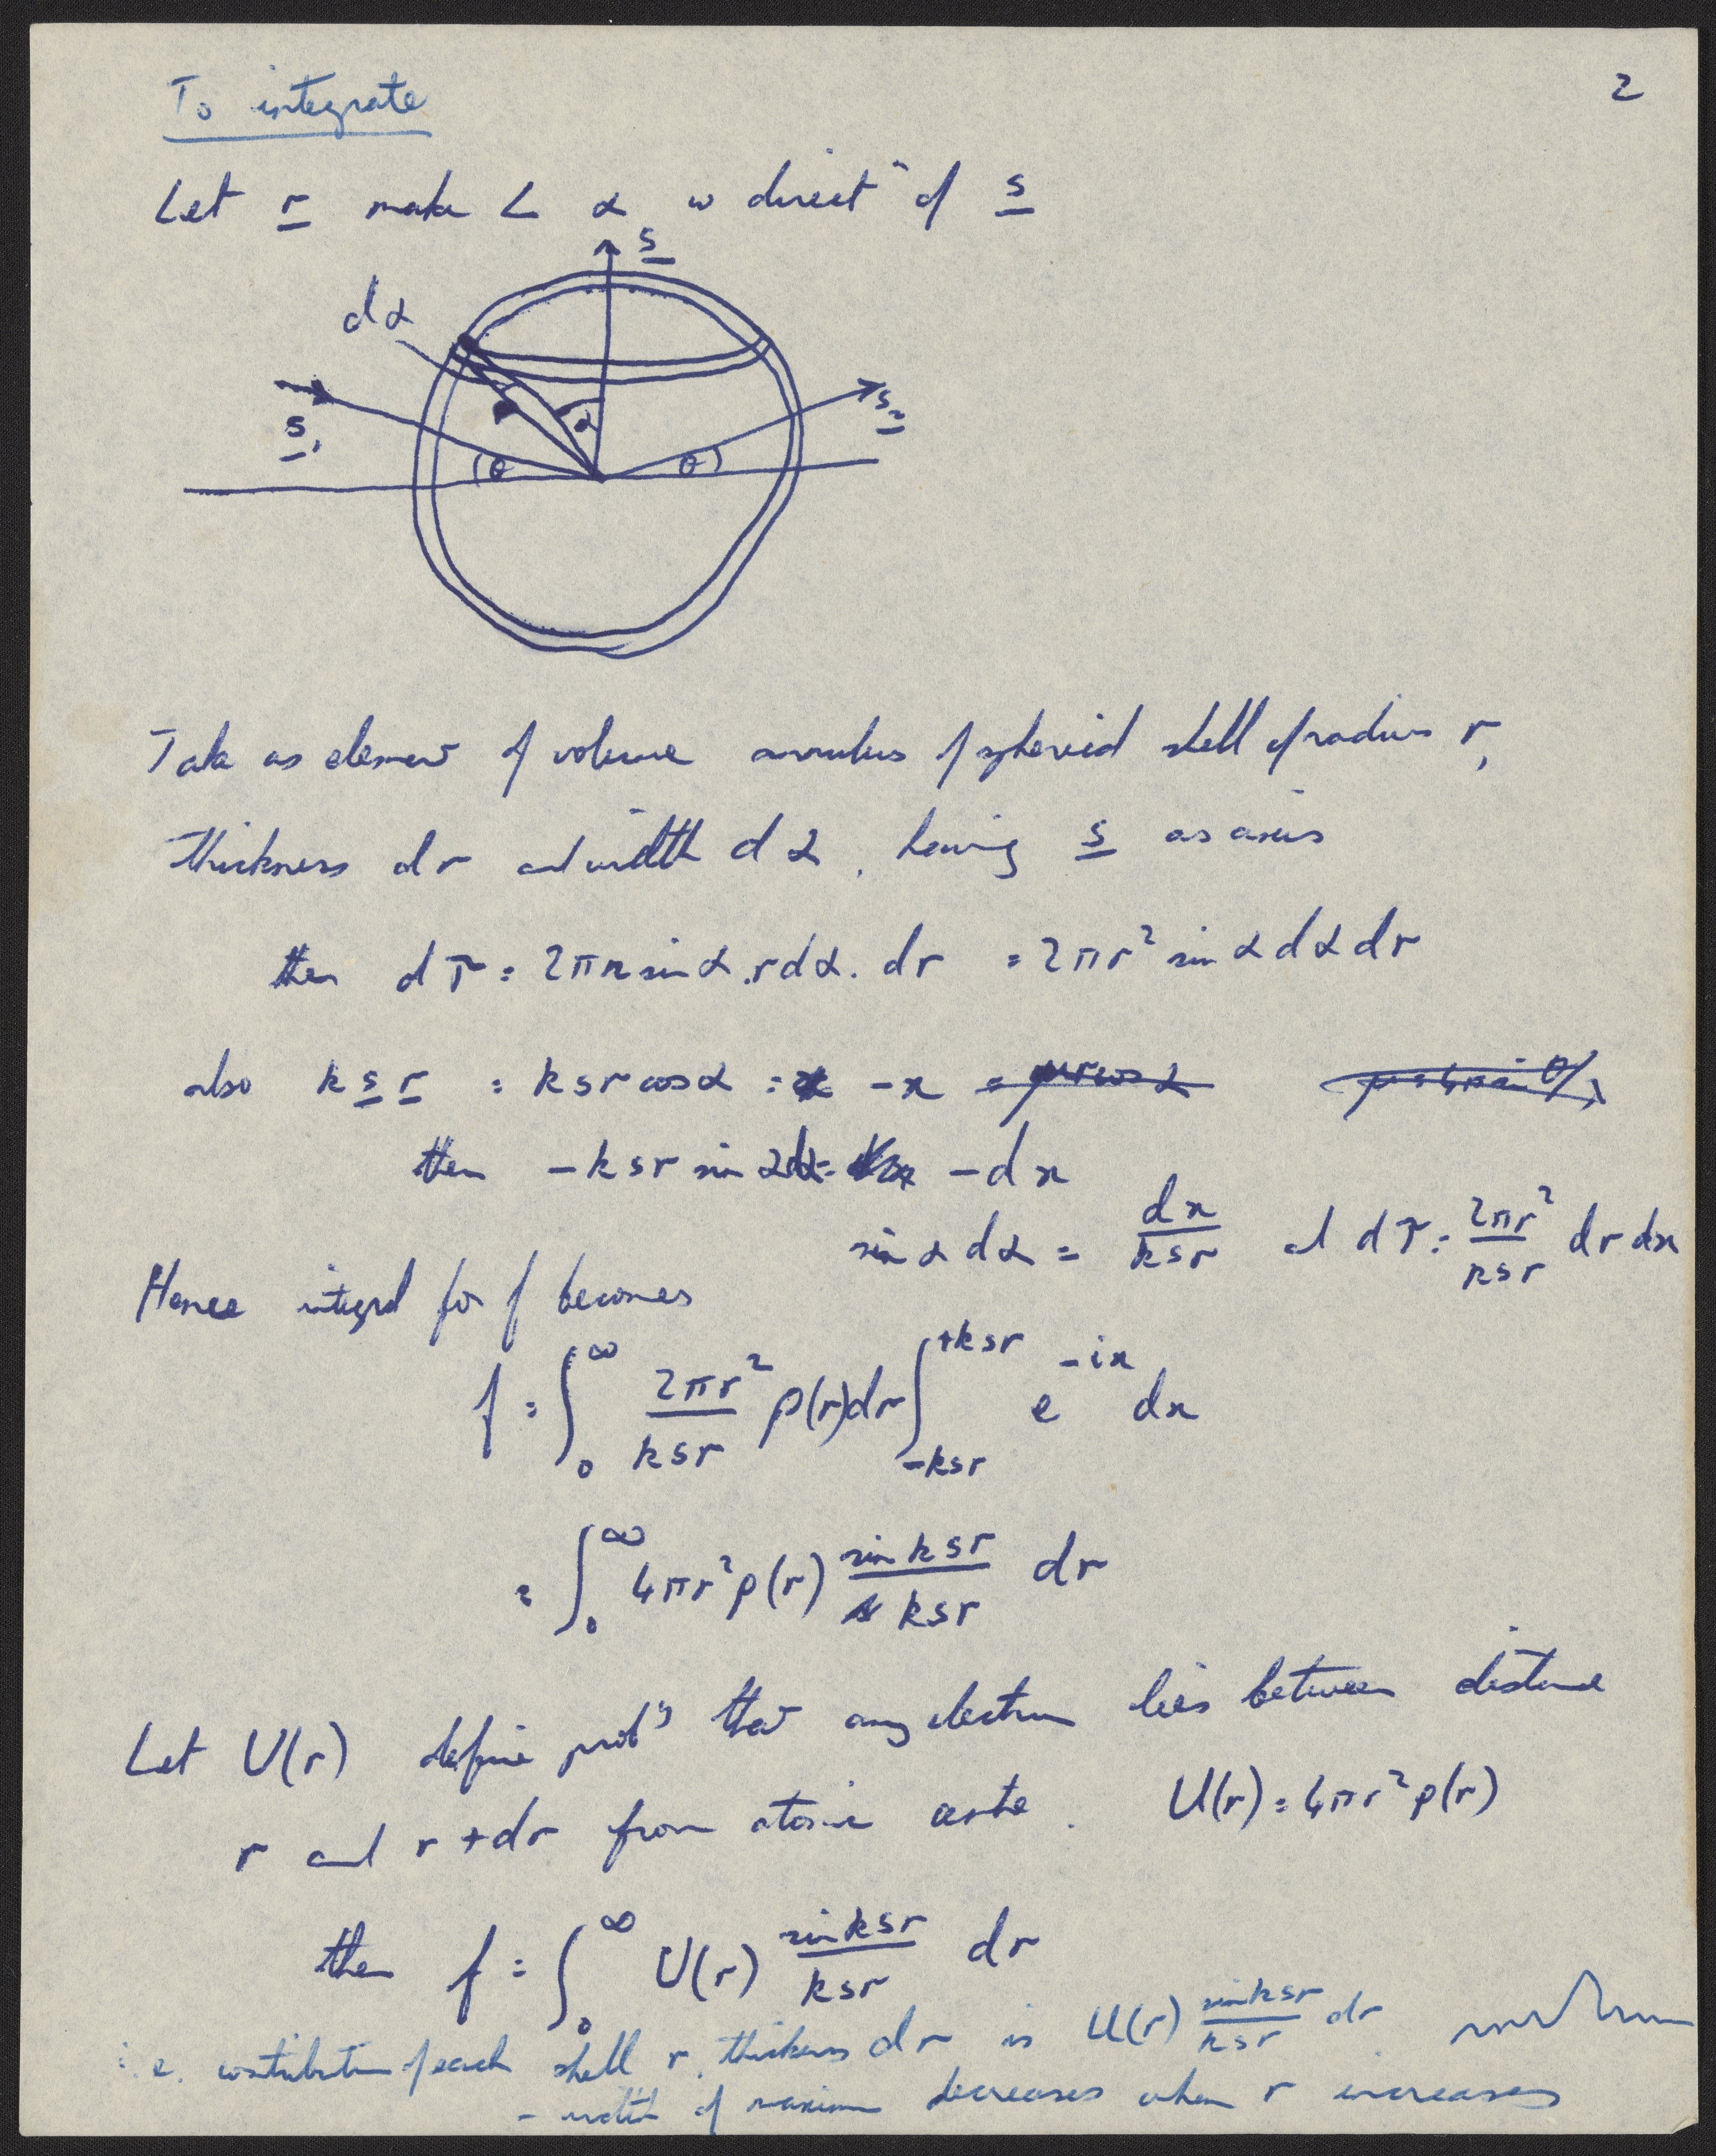 2
To integrate
Let r make ∠ α w directⁿ of s
s
dα
α
s₁
s₂
θ
θ
Take as element of volume annulus of spheroid shell of radius r,
thickness dr and width dα, having s as axis
then dτ = 2πr sin α . r dα . dr = 2πr² sin α dα dr
also k s r = k s r cos α = -x = μr cos α
then -k s r sin α dα = -dx
sin α dα = dx/ksr and dτ = 2πr²/ksr dr dx
Hence integral for f becomes
f = ∫₀^∞ 2πr²/ksr ρ(r) dr ∫_{-ksr}^{+ksr} e^{-ix} dx
= ∫₀^∞ 4πr² ρ(r) sin ksr/ksr dr
Let U(r) define probʸ that any electron lies between distance
r and r + dr from atomic centre. U(r) = 4πr² ρ(r)
then f = ∫₀^∞ U(r) sin ksr/ksr dr
i.e. contribution of each shell r, thickness dr is U(r) sin ksr/ksr dr.
- width of maximum decreases when r increases